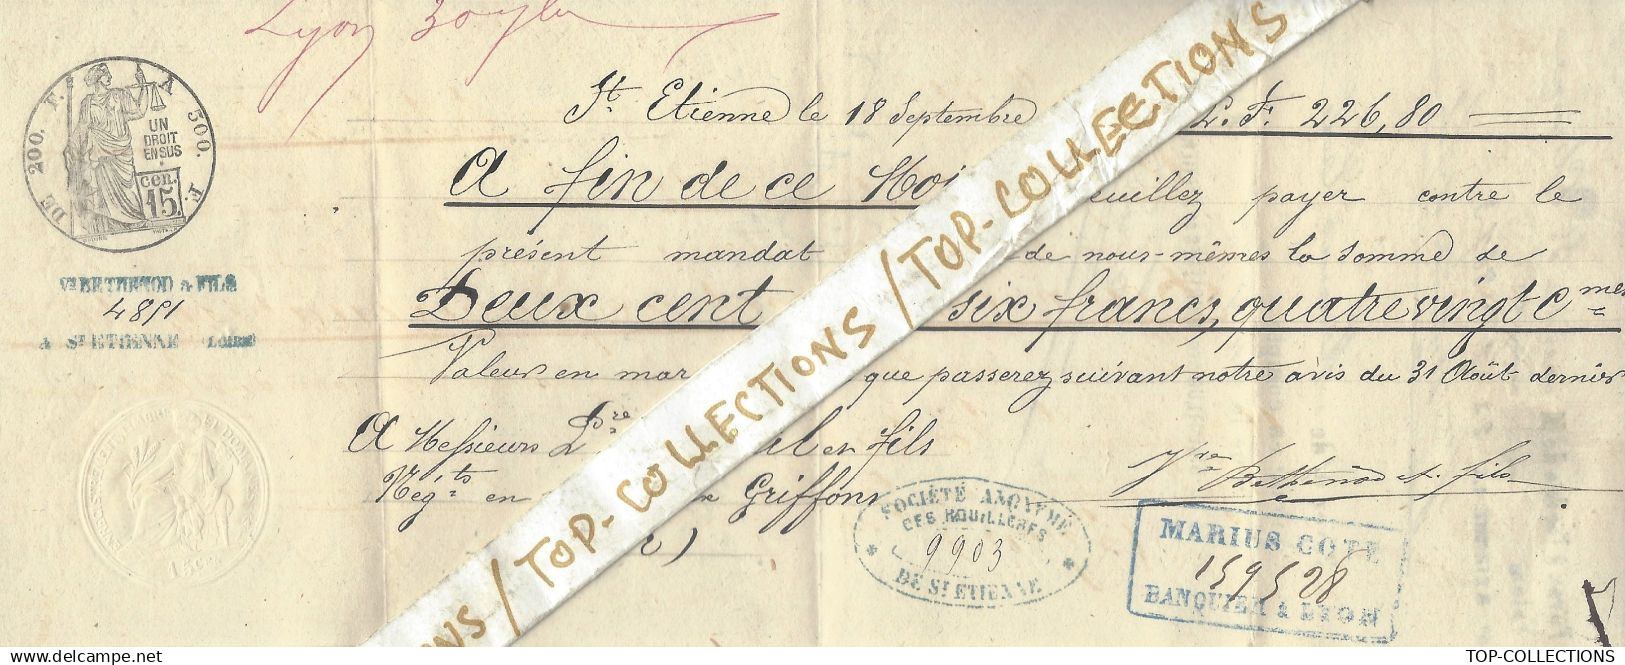 Lyon
DE 200. F. A 500. F.
UN
DROIT
EN SUS
cen.
15.
St. Etienne le 18 Septembre
L. F. 226,80
A fin de ce Moi
euillez payer contre le
présent mandat
de nous-mêmes la somme de
Deux cent
six francs, quatre vingt cmes
Valeur en mar
que passerez suivant notre avis du 31 Août dernier
A Messieurs
fils
Négts en
Griffons
Vve Bethenod & fils
Vve BETHENOD & FILS
4891
A St ETIENNE (LOIRE)
SOCIÉTÉ ANONYME
DES HOUILLÈRES
9903
DE St ETIENNE
MARIUS COTE
159528
BANQUIER à LYON
TOP-COLLECTIONS / TOP-COLLECTIONS
ONS / TOP-COLLECTIONS / TOP-COLLECTIONS
TOP-COLLECTIONS